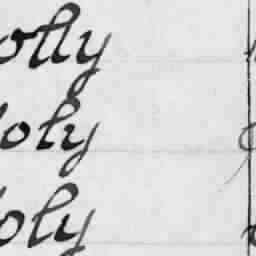 olly
oly
oly